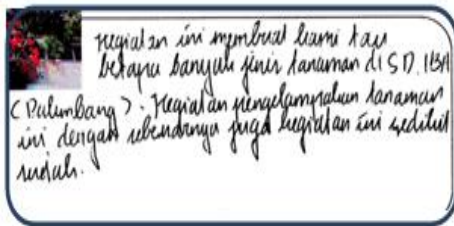 Kegiatan ini membuat kami tau
betapa banyak jenis tanaman di SD. IBA
(Palembang). Kegiatan tanaman
ini dengan sebenarnya juga kegiatan ini sedikit